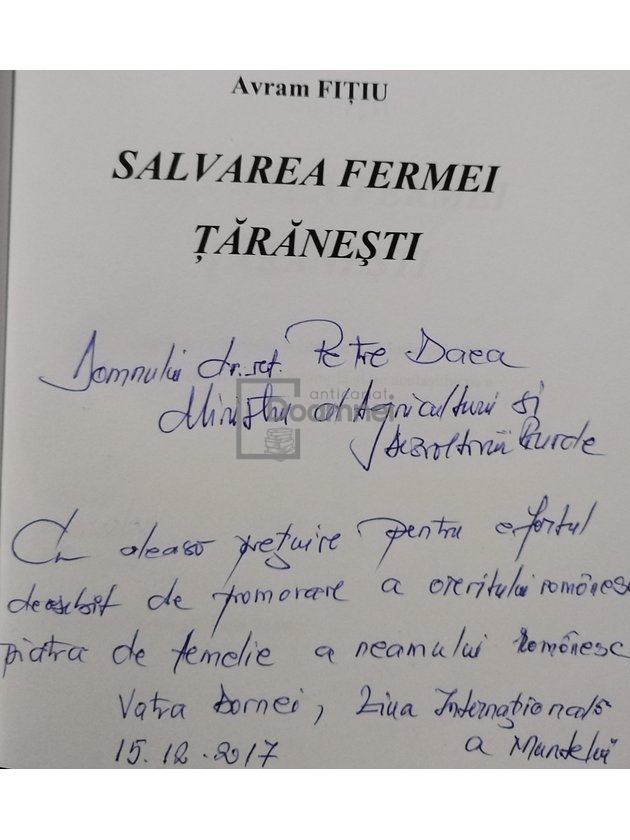 Avram FIȚIU
SALVAREA FERMEI
ȚĂRĂNEȘTI
Domnului dr. Petre Daea
Ministru al Agriculturii și
Dezvoltării Rurale
anticariat
Doamnei
Cu aleasă prețuire pentru efortul
deosebit de promovare a oieritului românesc
piatra de temelie a neamului românesc
Vatra Dornei, Ziua Internațională
15.12.2017 a Muntelui